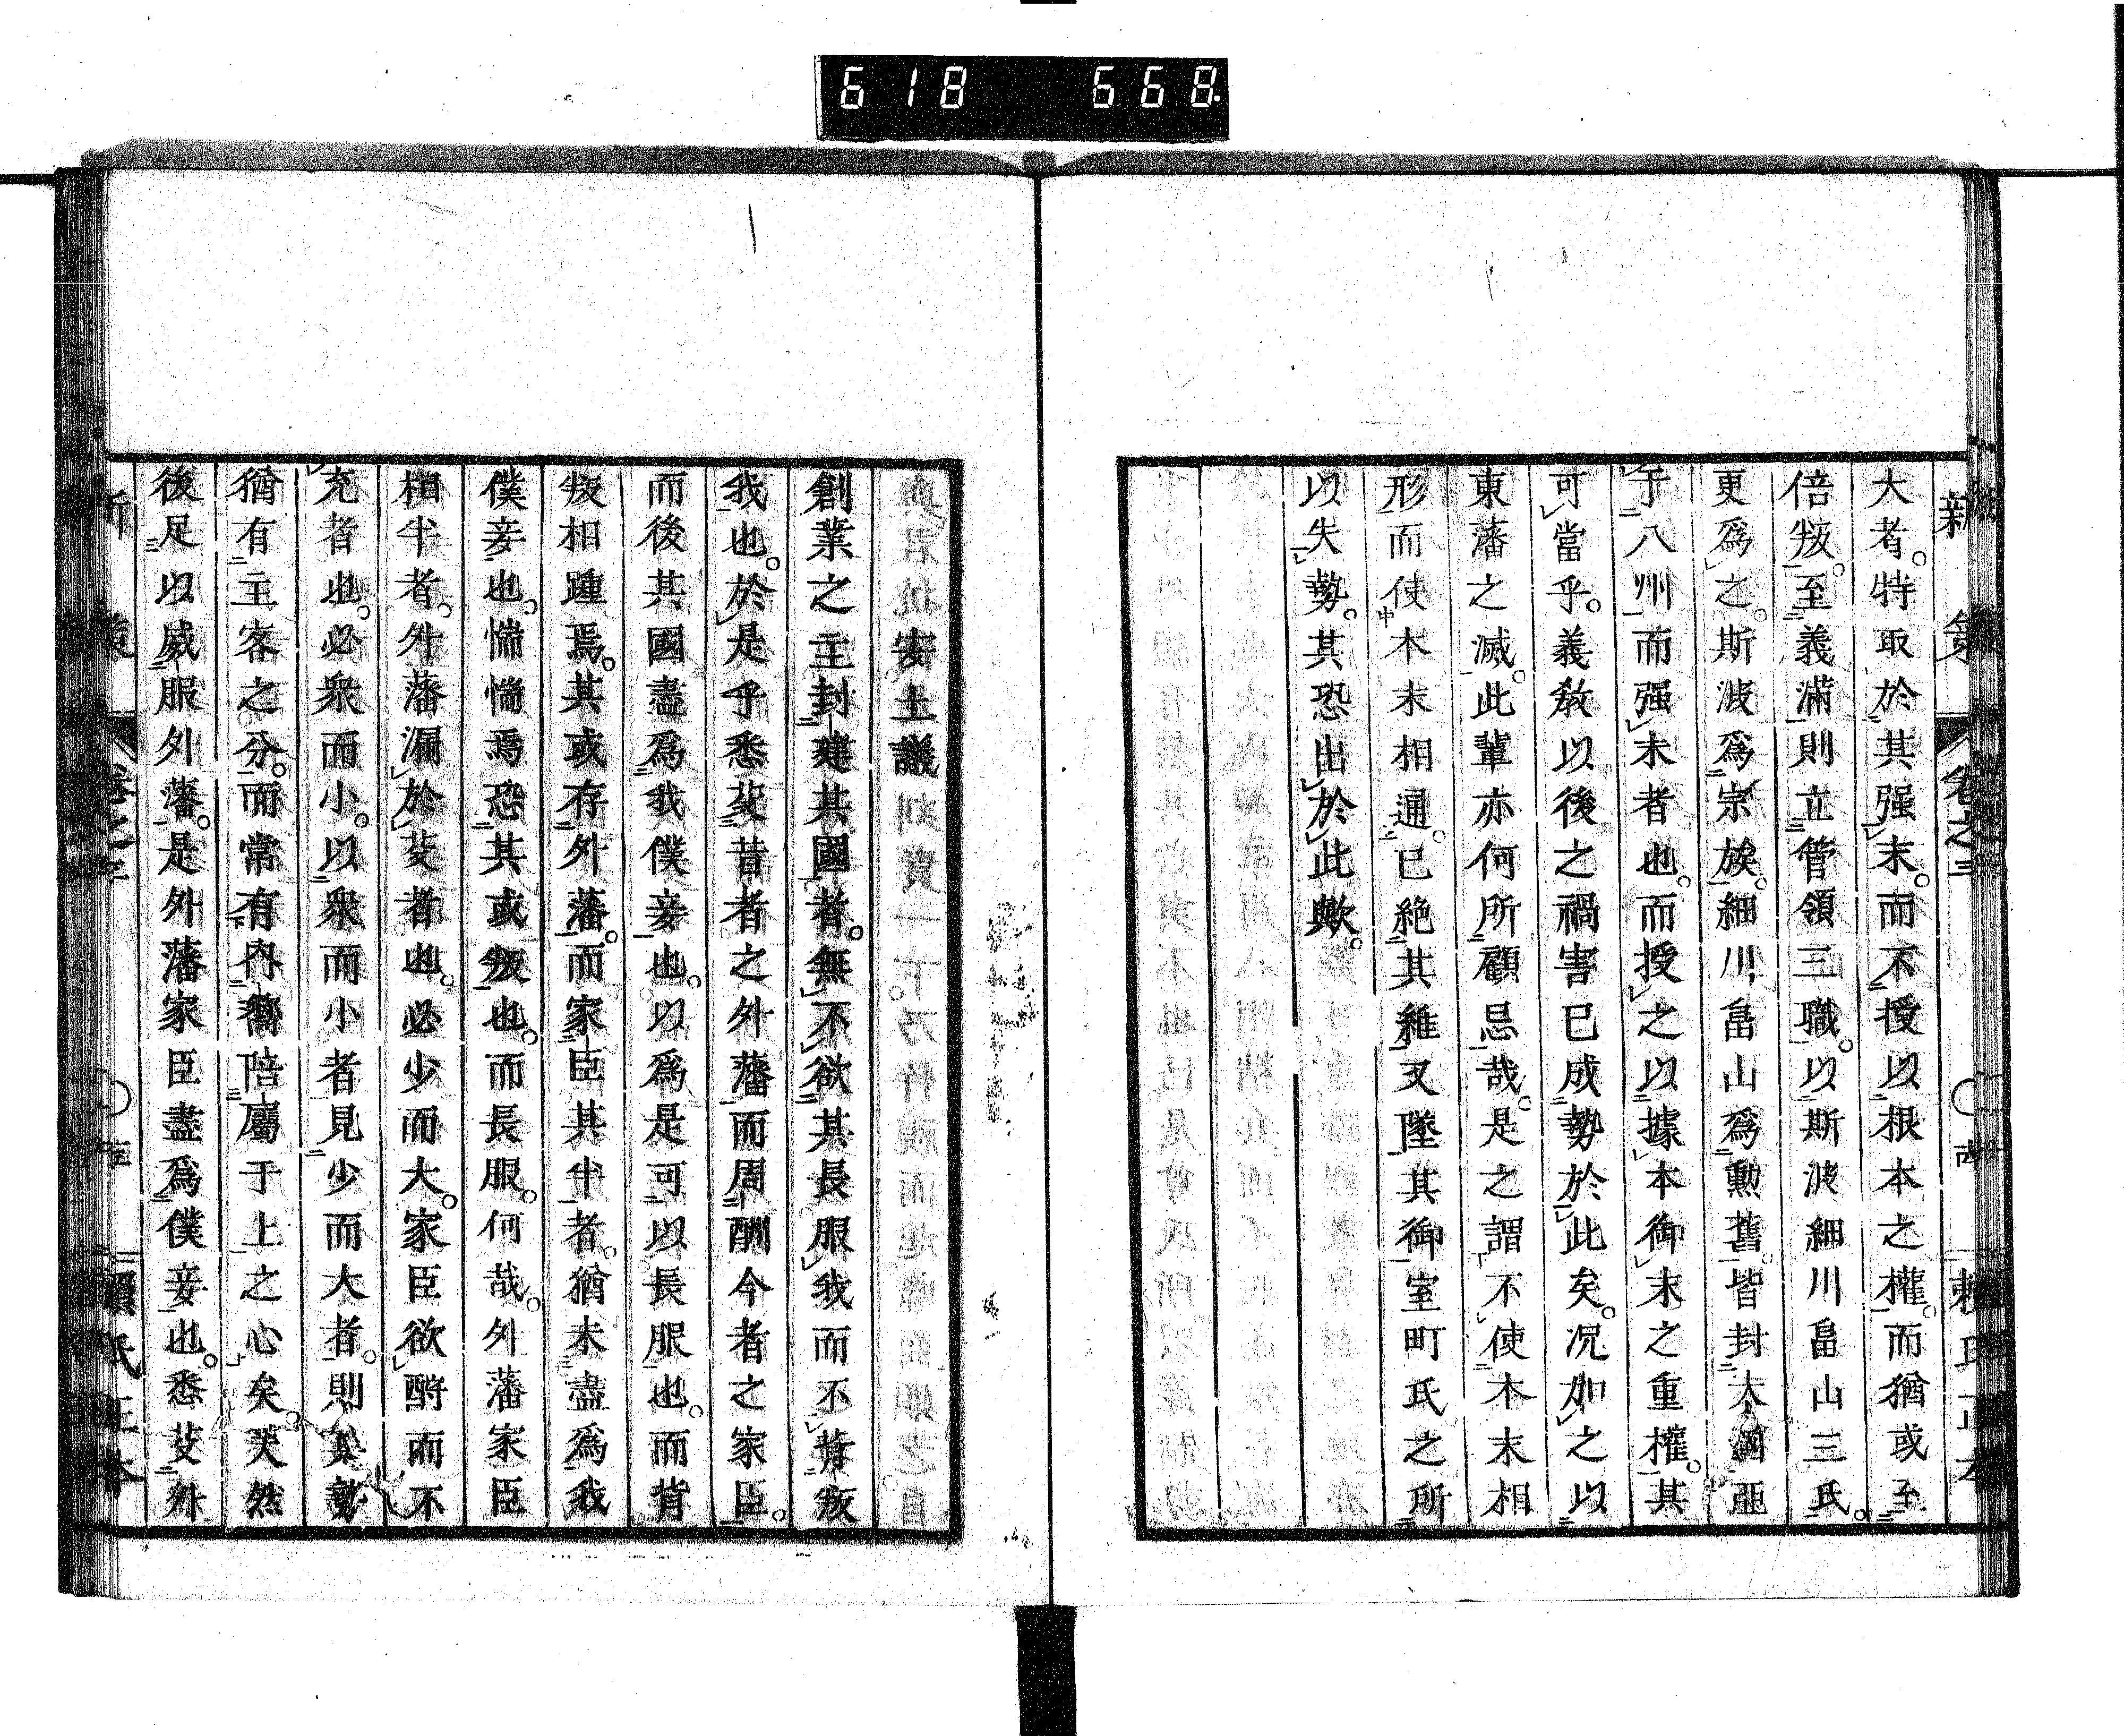 618 668.
新策 卷之三 〇 頼氏正本
大者。特取於其强末。而不授以根本之權。而猶或至
倍叛。至義滿則立管領三職。以斯波細川畠山三氏。
更爲之。斯波爲宗族。細川畠山爲勲舊。皆封大國亞
于八州而强末者也。而授之以據本御末之重權。其
可當乎。義教以後之禍害已成勢於此矣。况加之以
東藩之滅。此輩亦何所顧忌哉。是之謂不使本末相
形而使本末相通。已絶其維又墜其御室町氏之所
以失勢。其恐出於此歟。
安土議
創業之主封建其國者。無不欲其長服我而不背叛
我也。於是乎悉芟昔者之外藩而周酬今者之家臣。
而後其國盡爲我僕妾也。以爲是可以長服也。而背
叛相踵焉。其或存外藩。而家臣其半者。猶未盡爲我
僕妾也。惴惴焉恐其或叛也。而長服。何哉。外藩家臣
相半者。外藩漏於芟者也。必少而大。家臣欲酬而不
充者也。必衆而小。以衆而小者見少而大者。則其勢
猶有主客之分。而常有內嚮陪屬于上之心矣。夫然
後足以威服外藩。是外藩家臣盡爲僕妾也。悉芟外
新策 卷之三 〇 頼氏正本